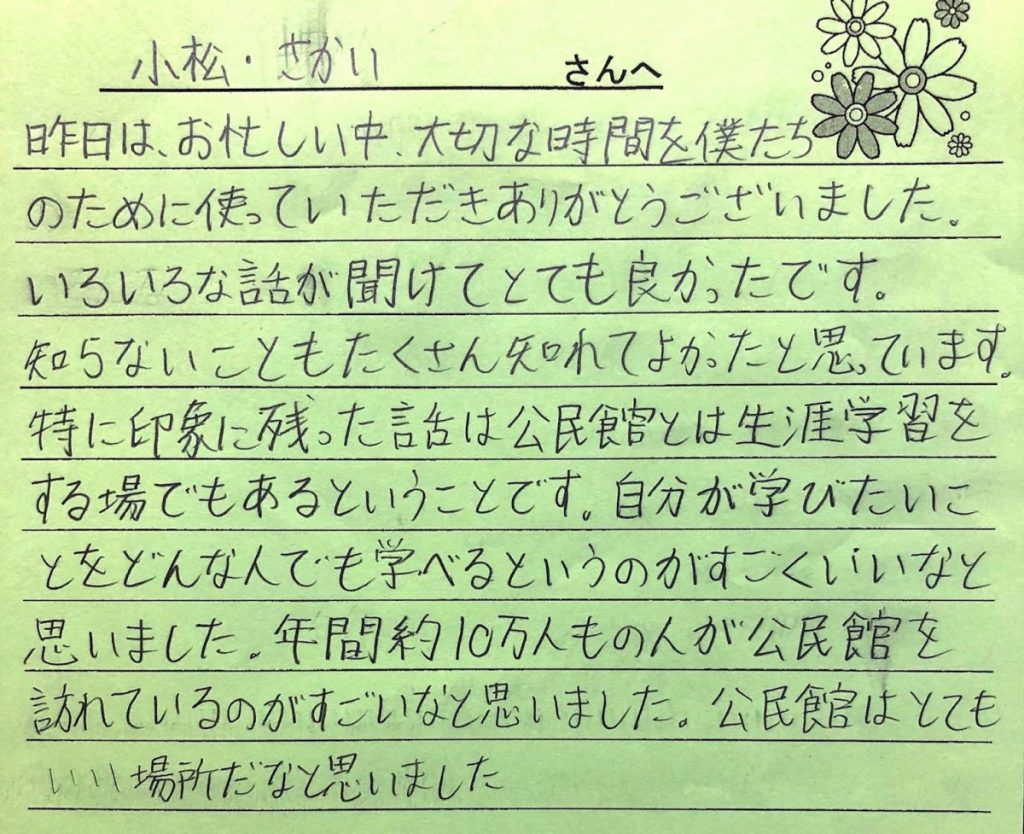 小松・さかい さんへ
昨日は、お忙しい中、大切な時間を僕たち
のために使っていただきありがとうございました。
いろいろな話が聞けてとても良かったです。
知らないこともたくさん知れてよかったと思っています。
特に印象に残った話は公民館とは生涯学習を
する場でもあるということです。自分が学びたいこ
とをどんな人でも学べるというのがすごくいいなと
思いました。年間約10万人もの人が公民館を
訪れているのがすごいなと思いました。公民館はとても
いい場所だなと思いました